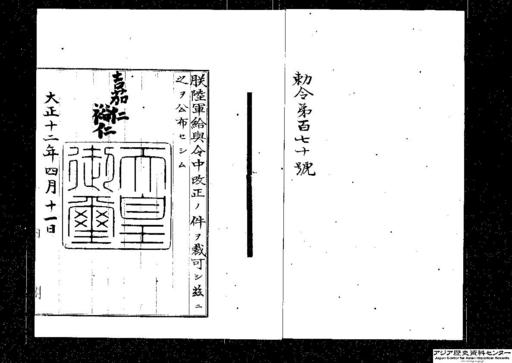 勅令第百七十號
朕陸軍給與令中改正ノ件ヲ裁可シ茲ニ
之ヲ公布セシム
嘉仁
裕仁
天皇御璽
大正十二年四月十一日
アジア歴史資料センター
Japan Center for Asian Historical Records